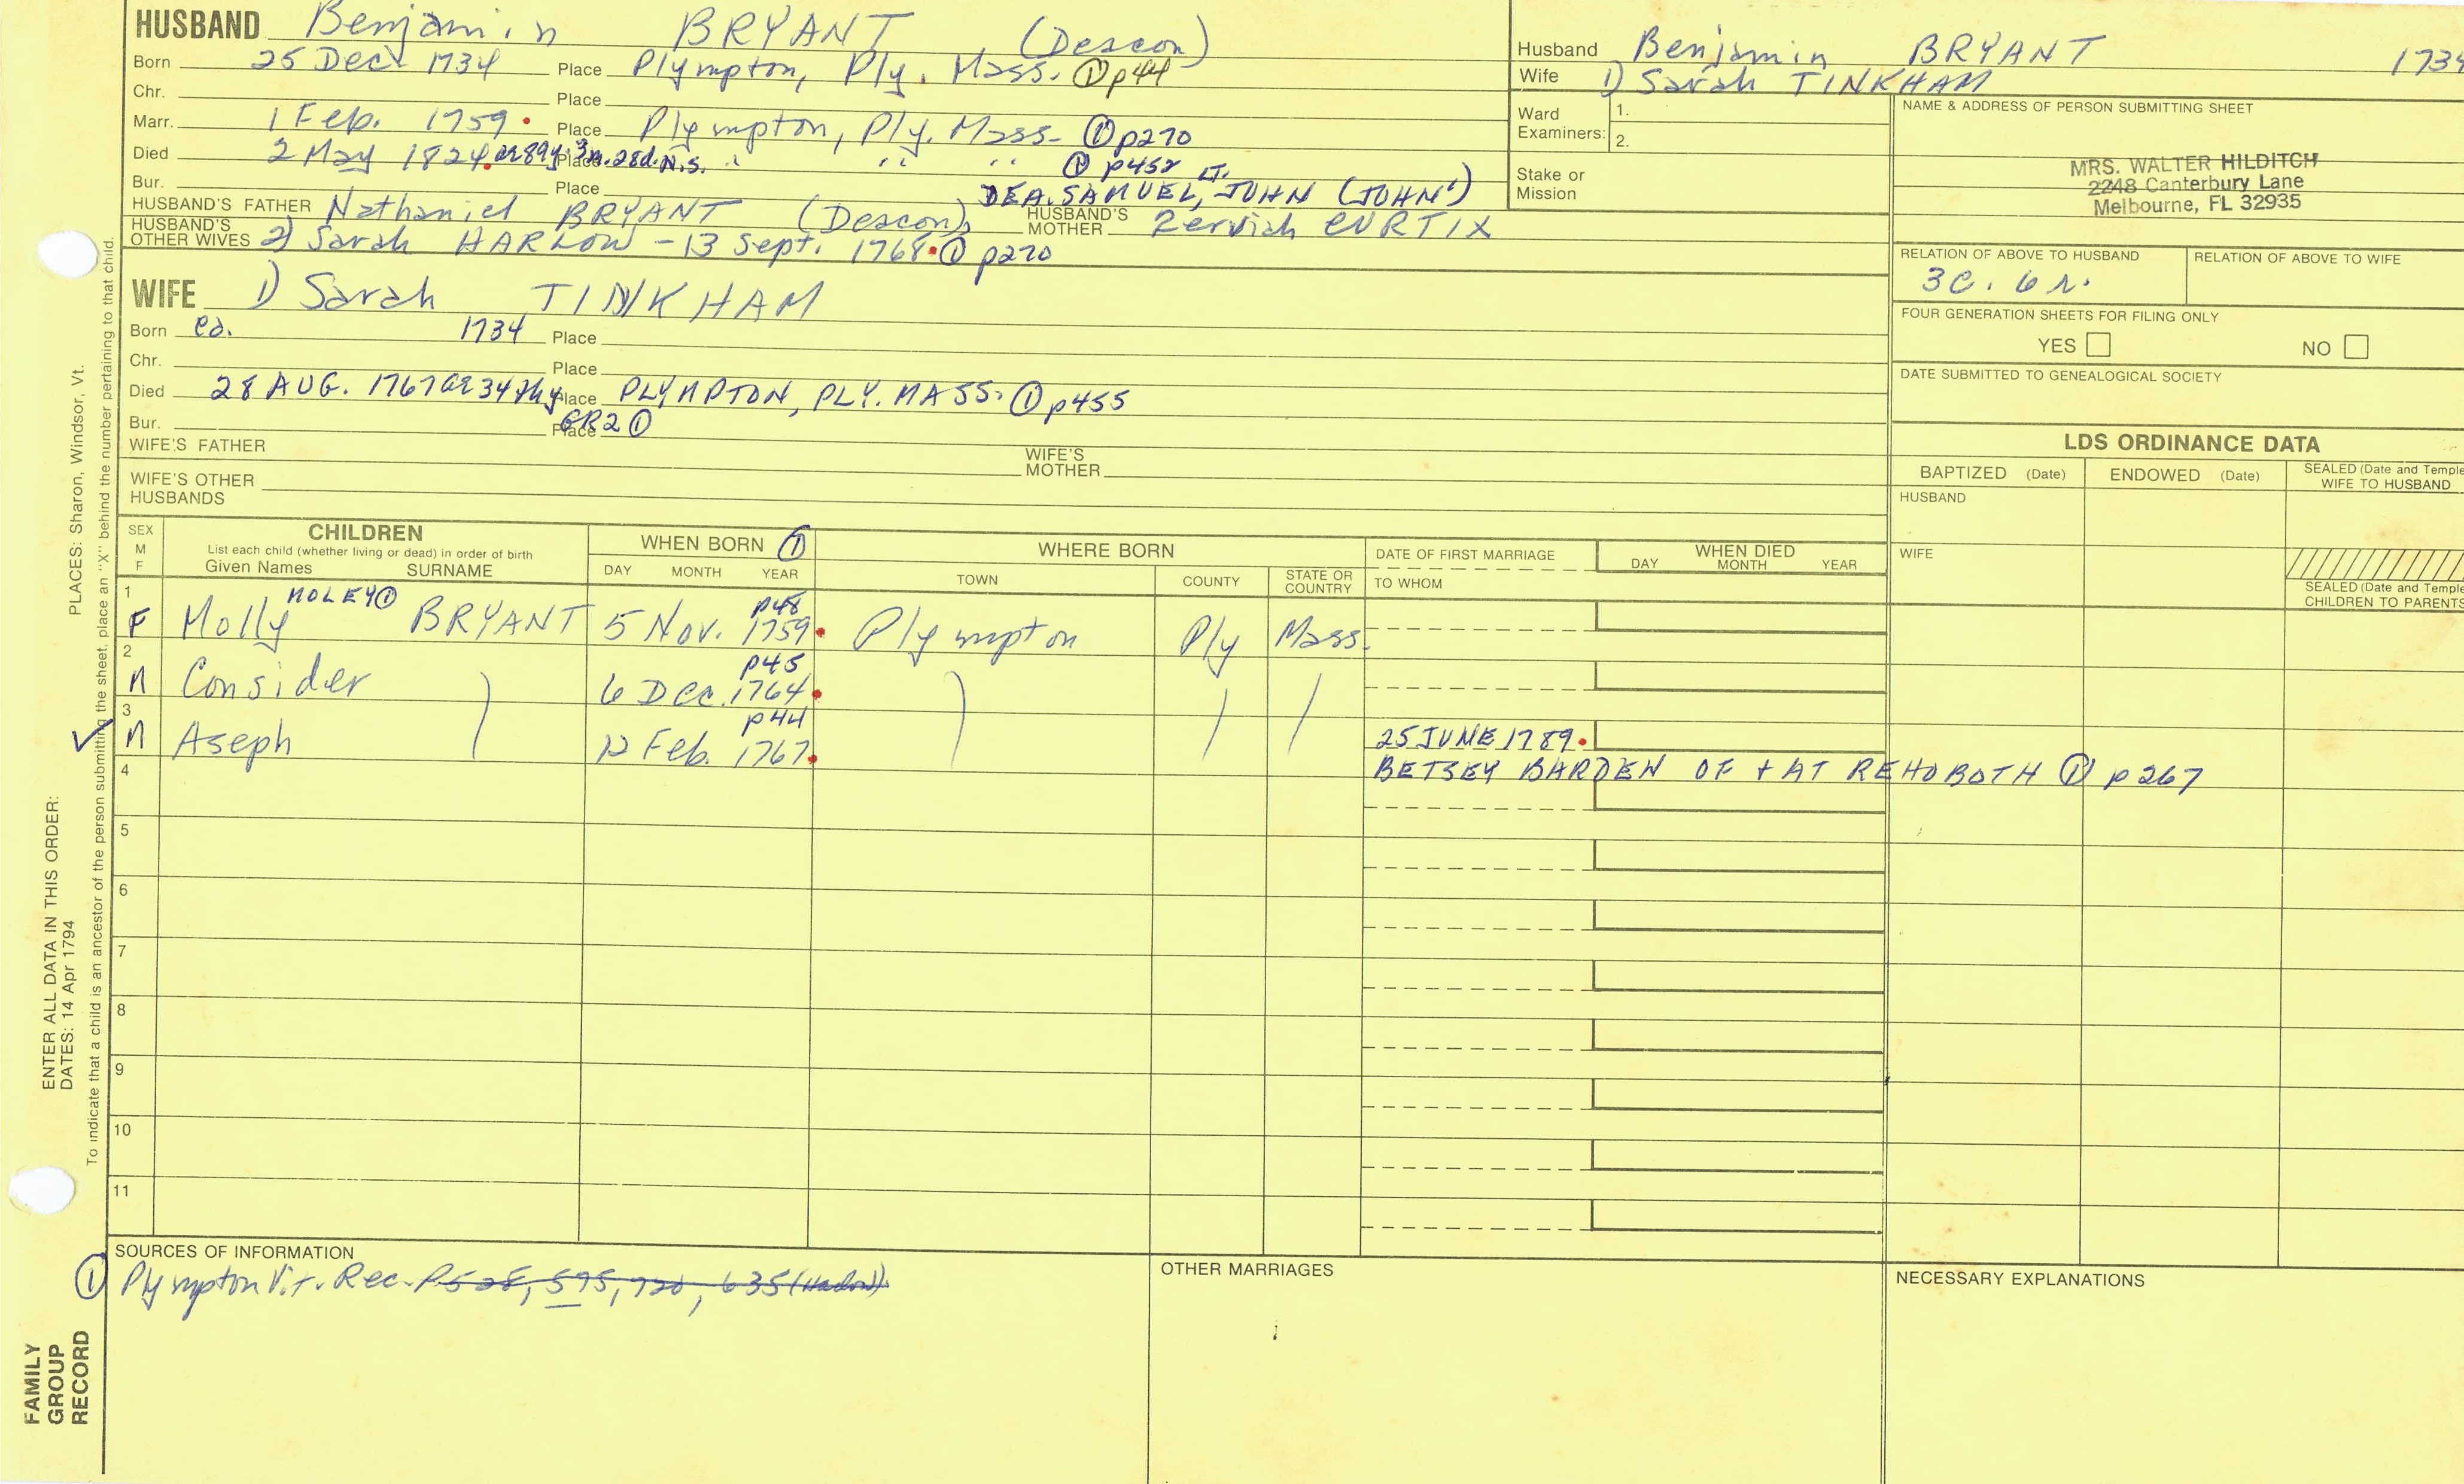 HUSBAND Benjamin BRYANT (Deacon)
Born 25 Dec 1734 Place Plympton, Ply. Mass. ① p44
Chr. Place
Marr. 1 Feb. 1759. Place Plympton, Ply. Mass- ① p270
Died 2 May 1824. ae 89y. 3m. 28d. N.S. Place " " " ① p452
Bur. Place DEA. SAMUEL, LT. JOHN (JOHN¹)
HUSBAND'S FATHER Nathaniel BRYANT (Deacon), HUSBAND'S MOTHER Zerviah CURTIX
HUSBAND'S OTHER WIVES 2) Sarah HARLOW - 13 Sept. 1768. ① p270
WIFE 1) Sarah TINKHAM
Born ca. 1734 Place
Chr. Place
Died 28 AUG. 1767 ae 34thy Place PLYMPTON, PLY. MASS. ① p455
Bur. Place GR2 ①
WIFE'S FATHER WIFE'S MOTHER
WIFE'S OTHER HUSBANDS
Husband Benjamin BRYANT 1734
Wife 1) Sarah TINKHAM
Ward Examiners: 1. 2.
Stake or Mission
NAME & ADDRESS OF PERSON SUBMITTING SHEET
MRS. WALTER HILDITCH
2248 Canterbury Lane
Melbourne, FL 32935
RELATION OF ABOVE TO HUSBAND RELATION OF ABOVE TO WIFE
3C. 6 r.
FOUR GENERATION SHEETS FOR FILING ONLY
YES NO
DATE SUBMITTED TO GENEALOGICAL SOCIETY
LDS ORDINANCE DATA
BAPTIZED (Date) ENDOWED (Date) SEALED (Date and Temple WIFE TO HUSBAND
HUSBAND
WIFE
SEALED (Date and Temple CHILDREN TO PARENTS
SEX M F
CHILDREN
List each child (whether living or dead) in order of birth
Given Names SURNAME
WHEN BORN ①
DAY MONTH YEAR
WHERE BORN
TOWN COUNTY STATE OR COUNTRY
DATE OF FIRST MARRIAGE
TO WHOM
WHEN DIED
DAY MONTH YEAR
1 F Molly MOLEY① BRYANT 5 Nov. 1759. p48 Plympton Ply Mass.
2 M Consider ) 6 Dec. 1764. p45 ) ) /
3 M Aseph 12 Feb. 1767. p44 25 JUNE 1789.
4 BETSEY BARDEN OF + AT REHOBOTH ① p267
5
6
7
8
9
10
11
SOURCES OF INFORMATION
① Plympton Vit. Rec. P528, 595, 720, 635 (Harlow)
OTHER MARRIAGES
NECESSARY EXPLANATIONS
PLACES: Sharon, Windsor, Vt.
ENTER ALL DATA IN THIS ORDER:
DATES: 14 Apr 1794
To indicate that a child is an ancestor of the person submitting the sheet, place an "X" behind the number pertaining to that child.
FAMILY
GROUP
RECORD